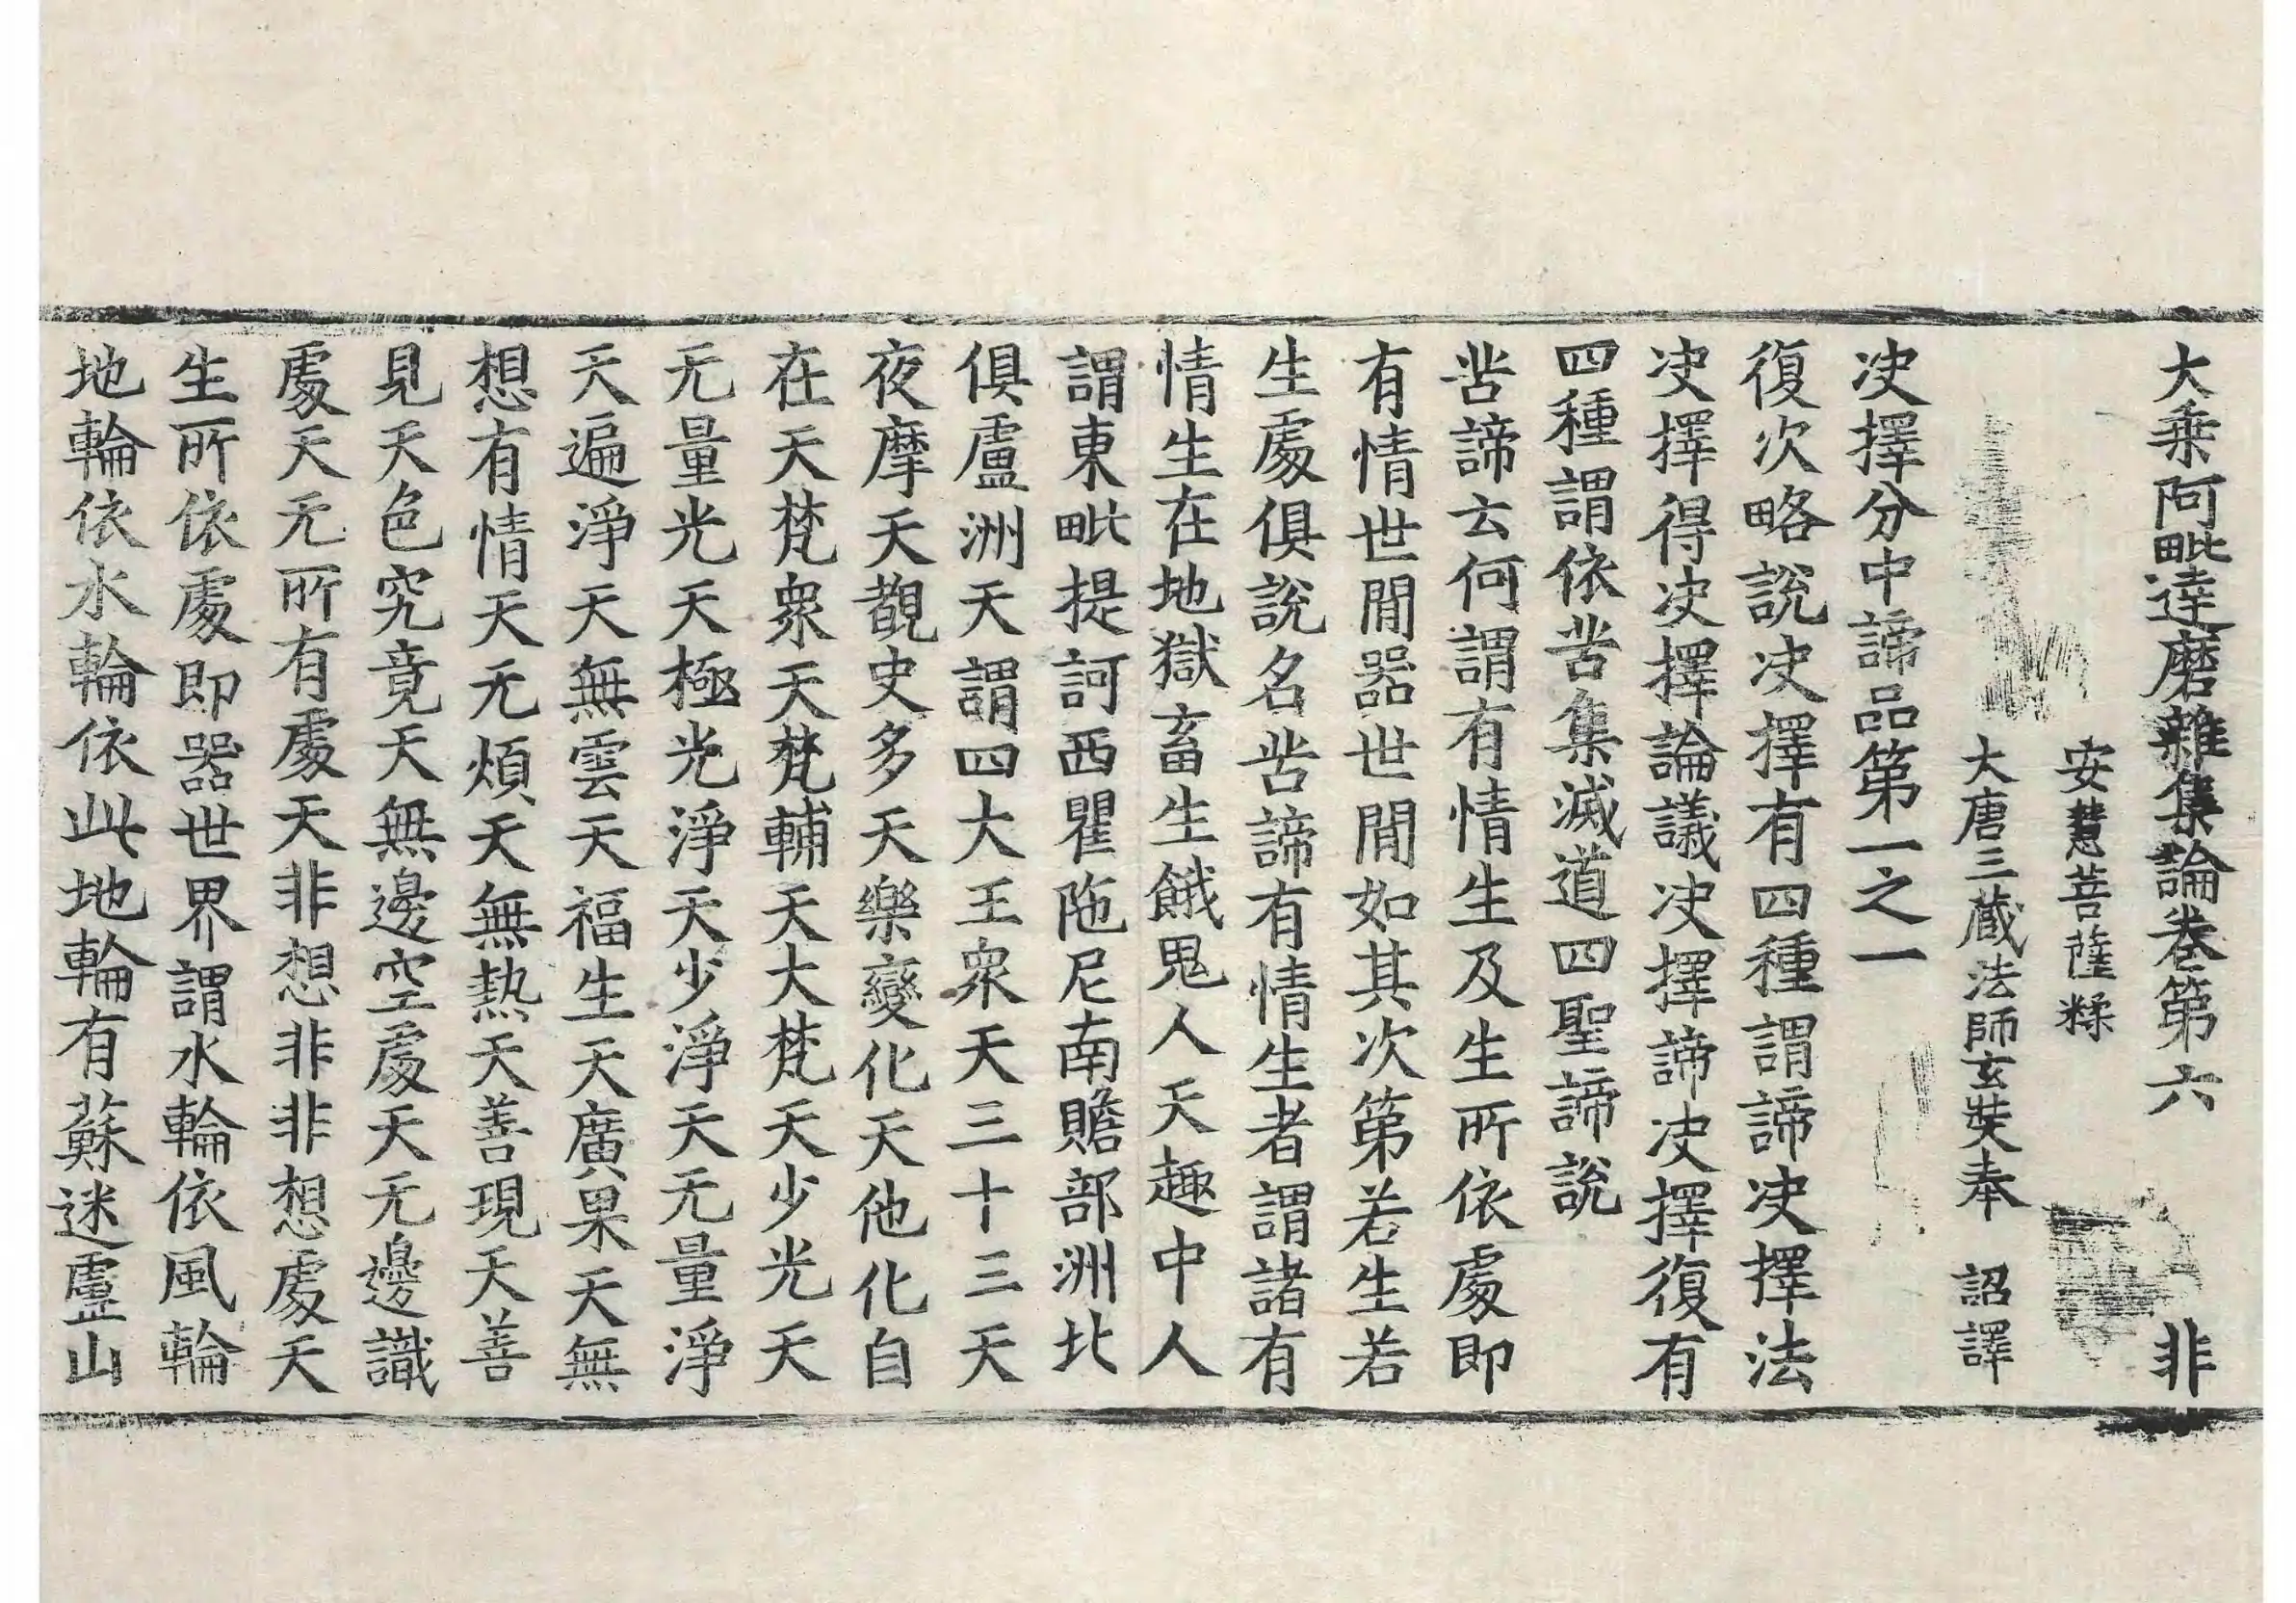 大乗阿毗達磨雜集論卷第六　非
安慧菩薩糅
大唐三蔵法師玄奘奉　詔譯
决擇分中諦品第一之一
復次略說决擇有四種謂諦决擇法
决擇得决擇論議决擇諦决擇復有
四種謂依苦集滅道四聖諦說
苦諦云何謂有情生及生所依處即
有情世間器世間如其次第若生若
生處俱說名苦諦有情生者謂諸有
情生在地獄畜生餓鬼人天趣中人
謂東毗提訶西瞿陁尼南贍部洲北
俱盧洲天謂四大王衆天三十三天
夜摩天覩史多天樂變化天他化自
在天梵衆天梵輔天大梵天少光天
无量光天極光淨天少淨天无量淨
天遍淨天無雲天福生天廣果天無
想有情天无煩天無熱天善現天善
見天色究竟天無邊空處天无邊識
處天无所有處天非想非非想處天
生所依處即器世界謂水輪依風輪
地輪依水輪依此地輪有蘇迷盧山